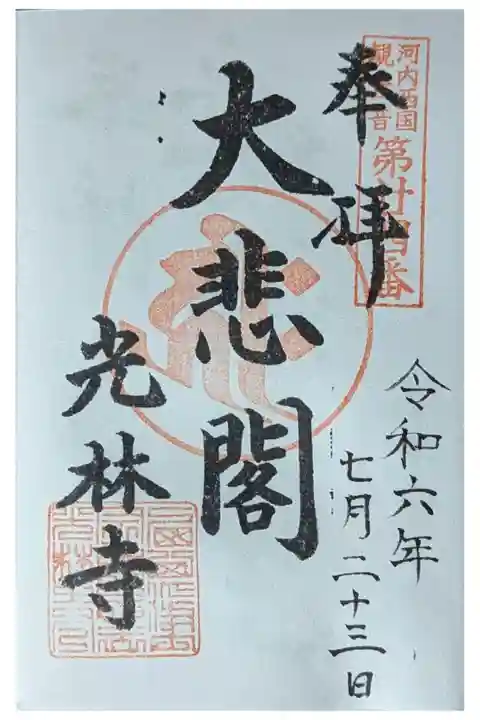 河内西国
観音
第廿四番
奉拝
令和六年
七月二十三日
大悲閣
光林寺